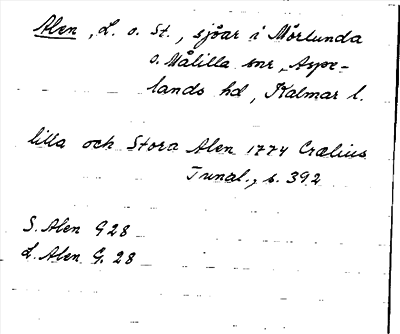 Alen, L. o. St., sjöar i Mörlunda
o. Målilla snr, Aspe-
lands hd, Kalmar l.
lilla och Stora Alen 1774 Crælius
Tunal., s. 392
S. Alen G 28
L. Alen G. 28